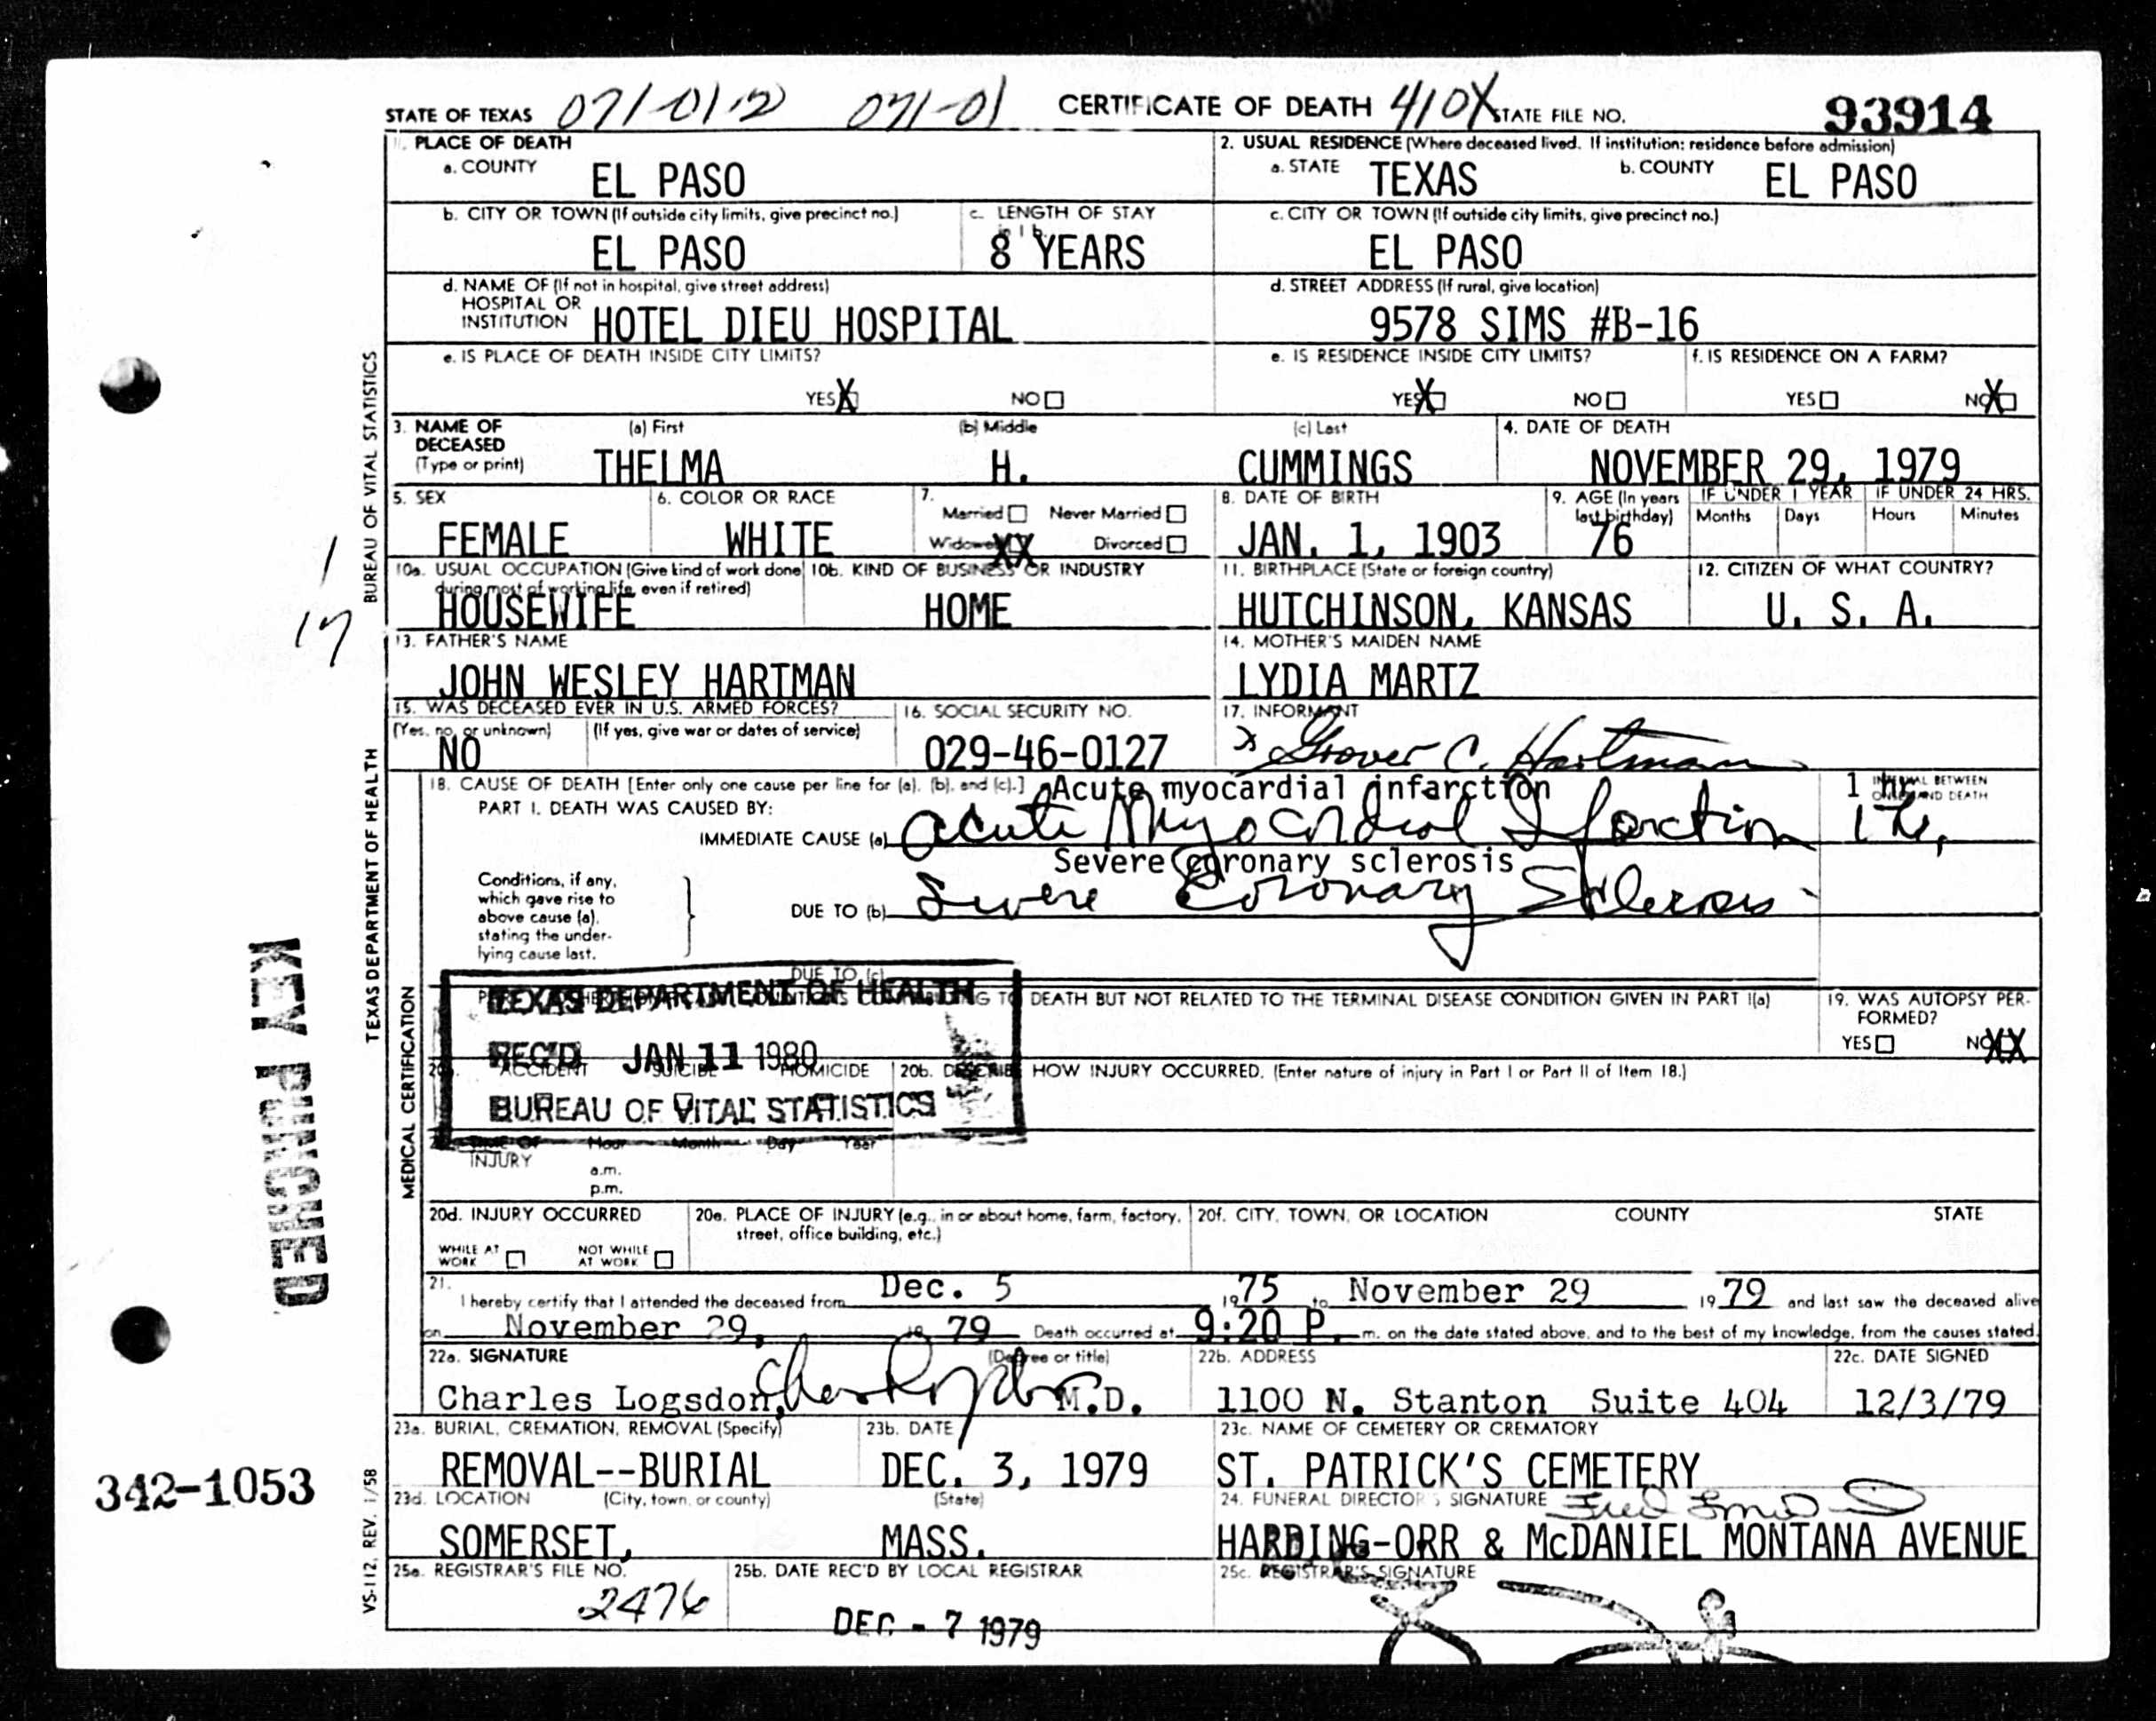 STATE OF TEXAS 071-01-2 071-01 CERTIFICATE OF DEATH 410X STATE FILE NO. 93914
1. PLACE OF DEATH
a. COUNTY EL PASO
2. USUAL RESIDENCE (Where deceased lived. If institution: residence before admission)
a. STATE TEXAS b. COUNTY EL PASO
b. CITY OR TOWN (If outside city limits, give precinct no.) EL PASO
c. LENGTH OF STAY in 1 b. 8 YEARS
c. CITY OR TOWN (If outside city limits, give precinct no.) EL PASO
d. NAME OF (If not in hospital, give street address)
HOSPITAL OR
INSTITUTION HOTEL DIEU HOSPITAL
d. STREET ADDRESS (If rural, give location)
9578 SIMS #B-16
e. IS PLACE OF DEATH INSIDE CITY LIMITS?
YES X NO
e. IS RESIDENCE INSIDE CITY LIMITS?
YES X NO
f. IS RESIDENCE ON A FARM?
YES NO X
3. NAME OF DECEASED (Type or print)
(a) First THELMA
(b) Middle H.
(c) Last CUMMINGS
4. DATE OF DEATH
NOVEMBER 29, 1979
5. SEX
FEMALE
6. COLOR OR RACE
WHITE
7.
Married Never Married
Widowed XX Divorced
8. DATE OF BIRTH
JAN. 1, 1903
9. AGE (In years last birthday)
76
IF UNDER 1 YEAR
Months Days
IF UNDER 24 HRS.
Hours Minutes
10a. USUAL OCCUPATION (Give kind of work done during most of working life, even if retired)
HOUSEWIFE
10b. KIND OF BUSINESS OR INDUSTRY
HOME
11. BIRTHPLACE (State or foreign country)
HUTCHINSON, KANSAS
12. CITIZEN OF WHAT COUNTRY?
U. S. A.
13. FATHER'S NAME
JOHN WESLEY HARTMAN
14. MOTHER'S MAIDEN NAME
LYDIA MARTZ
15. WAS DECEASED EVER IN U.S. ARMED FORCES?
(Yes, no, or unknown) (If yes, give war or dates of service)
NO
16. SOCIAL SECURITY NO.
029-46-0127
17. INFORMANT
x Grover C. Hartman
18. CAUSE OF DEATH [Enter only one cause per line for (a), (b), and (c).]
PART I. DEATH WAS CAUSED BY:
Acute myocardial infarction
IMMEDIATE CAUSE (a) Acute Myocardial Infarction
INTERVAL BETWEEN ONSET AND DEATH
1 Hr.
1 Hr.
Conditions, if any,
which gave rise to
above cause (a),
stating the under-
lying cause last.
Severe coronary sclerosis
DUE TO (b) Severe Coronary Sclerosis
DUE TO (c)
TO DEATH BUT NOT RELATED TO THE TERMINAL DISEASE CONDITION GIVEN IN PART I(a)
19. WAS AUTOPSY PERFORMED?
YES NO XX
TEXAS DEPARTMENT OF HEALTH
REC'D JAN 11 1980
BUREAU OF VITAL STATISTICS
ACCIDENT SUICIDE HOMICIDE
20b. DESCRIBE HOW INJURY OCCURRED. (Enter nature of injury in Part I or Part II of Item 18.)
TIME OF INJURY Hour Month Day Year
a.m.
p.m.
20d. INJURY OCCURRED
WHILE AT WORK NOT WHILE AT WORK
20e. PLACE OF INJURY (e.g., in or about home, farm, factory, street, office building, etc.)
20f. CITY, TOWN, OR LOCATION COUNTY STATE
21.
I hereby certify that I attended the deceased from Dec. 5 1975 to November 29 1979 and last saw the deceased alive
on November 29, 19 79 Death occurred at 9:20 P. m. on the date stated above, and to the best of my knowledge, from the causes stated.
22a. SIGNATURE (Degree or title)
Charles Logsdon, M.D.
22b. ADDRESS
1100 N. Stanton Suite 404
22c. DATE SIGNED
12/3/79
23a. BURIAL, CREMATION, REMOVAL (Specify)
REMOVAL--BURIAL
23b. DATE
DEC. 3, 1979
23c. NAME OF CEMETERY OR CREMATORY
ST. PATRICK'S CEMETERY
23d. LOCATION (City, town, or county) (State)
SOMERSET, MASS.
24. FUNERAL DIRECTOR'S SIGNATURE
HARDING-ORR & McDANIEL MONTANA AVENUE
25a. REGISTRAR'S FILE NO.
2476
25b. DATE REC'D BY LOCAL REGISTRAR
DEC - 7 1979
25c. REGISTRAR'S SIGNATURE
BUREAU OF VITAL STATISTICS
TEXAS DEPARTMENT OF HEALTH
MEDICAL CERTIFICATION
VS-112, REV. 1/58
1
17
KEY PUNCHED
342-1053